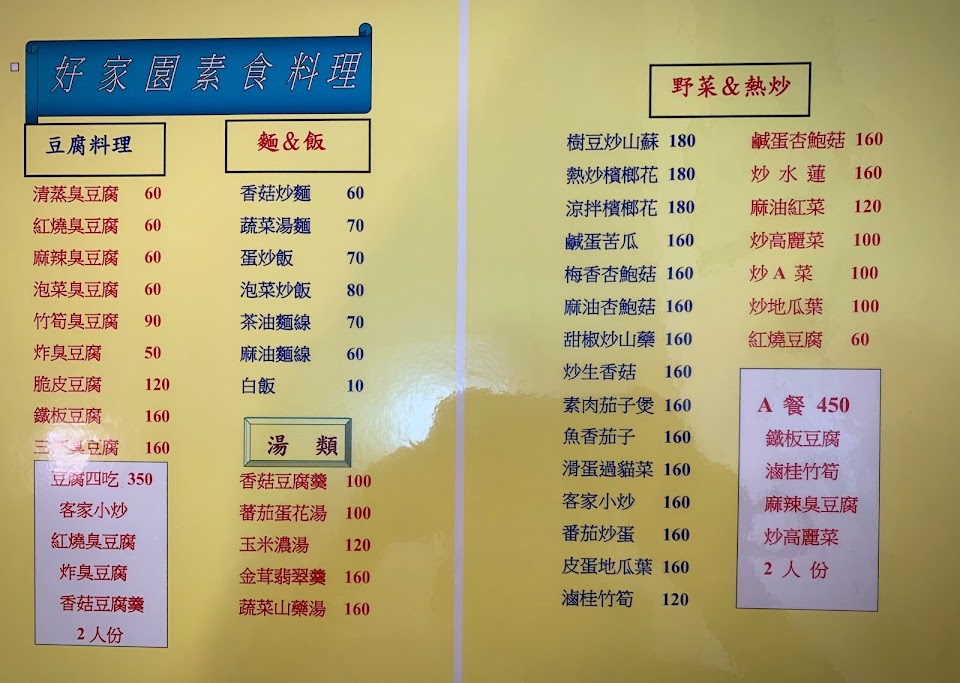 好家園素食料理
豆腐料理
清蒸臭豆腐 60
紅燒臭豆腐 60
麻辣臭豆腐 60
泡菜臭豆腐 60
竹筍臭豆腐 90
炸臭豆腐 50
脆皮豆腐 120
鐵板豆腐 160
三 臭豆腐 160
豆腐四吃 350
客家小炒
紅燒臭豆腐
炸臭豆腐
香菇豆腐羹
2人份
麵&飯
香菇炒麵 60
蔬菜湯麵 70
蛋炒飯 70
泡菜炒飯 80
茶油麵線 70
麻油麵線 60
白飯 10
湯類
香菇豆腐羹 100
蕃茄蛋花湯 100
玉米濃湯 120
金茸翡翠羹 160
蔬菜山藥湯 160
野菜&熱炒
樹豆炒山蘇 180
熱炒檳榔花 180
涼拌檳榔花 180
鹹蛋苦瓜 160
梅香杏鮑菇 160
麻油杏鮑菇 160
甜椒炒山藥 160
炒生香菇 160
素肉茄子煲 160
魚香茄子 160
滑蛋過貓菜 160
客家小炒 160
番茄炒蛋 160
皮蛋地瓜葉 160
滷桂竹筍 120
鹹蛋杏鮑菇 160
炒水蓮 160
麻油紅菜 120
炒高麗菜 100
炒A菜 100
炒地瓜葉 100
紅燒豆腐 60
A餐 450
鐵板豆腐
滷桂竹筍
麻辣臭豆腐
炒高麗菜
2人份